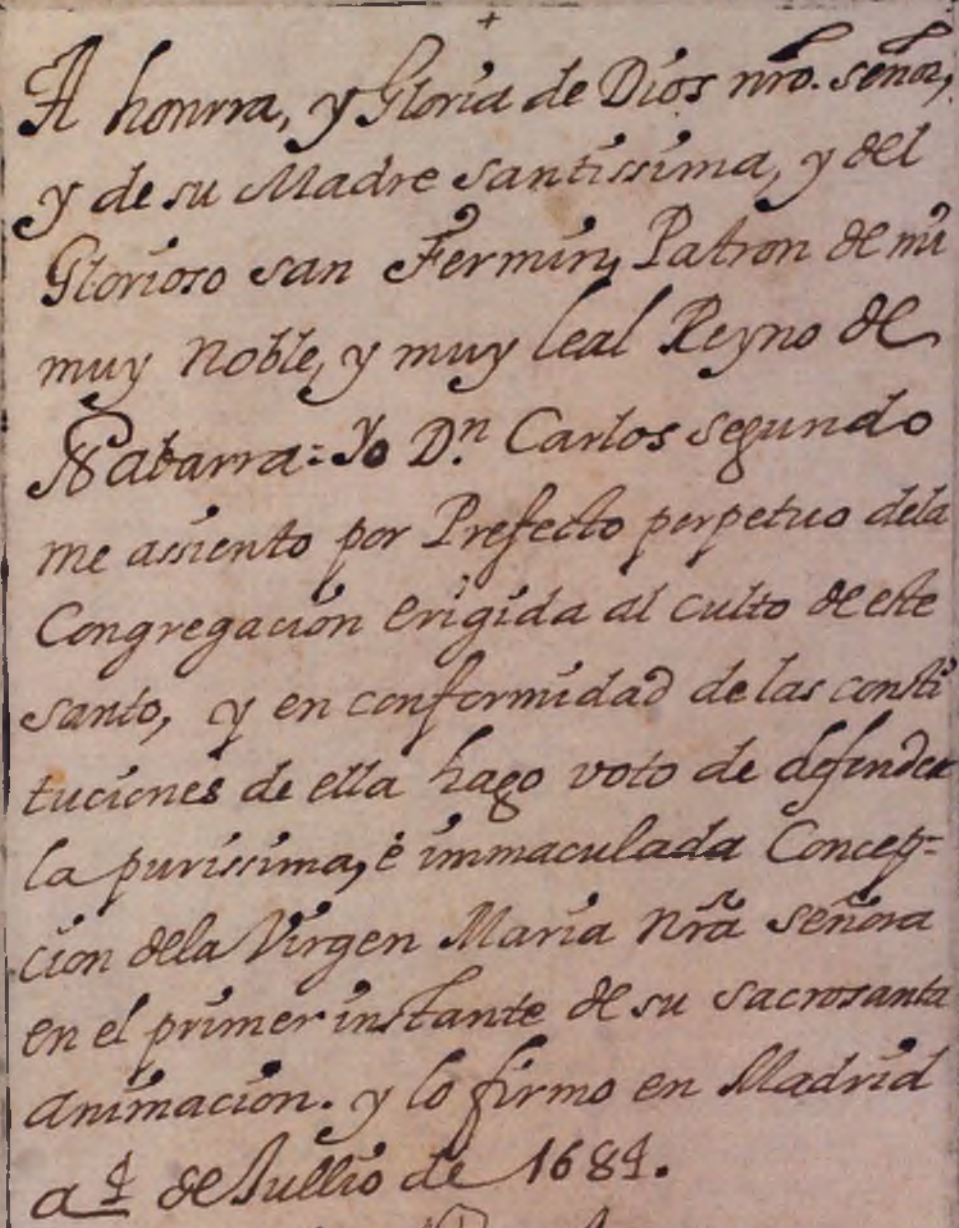 +
A honrra, y Gloria de Dios nro. señor,
y de su Madre santissima, y del
Glorioso san Fermin, Patron de mi
muy noble, y muy leal Reyno de
Nabarra: Yo D.n Carlos segundo
me assiento por Prefecto perpetuo dela
Congregacion erigida al culto de este
santo, y en conformidad de las consti
tuciones de ella hago voto de defender
la purissima, è immaculada Concep=
cion dela Virgen Maria nr̃a señora
en el primer instante de su sacrosanta
animacion. y lo firmo en Madrid
a 4 de Jullio de 1684.